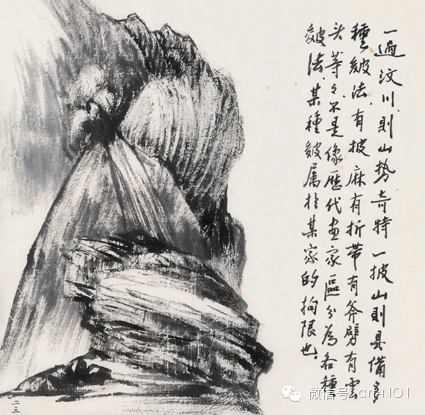 一過汶川則山勢奇特一披山則具備多
種皴法有披麻有折帶有斧劈有雲
头等々不是像歷代画家區分為各種
皴法某種皴属於某家的拘限也
二三
微信号: